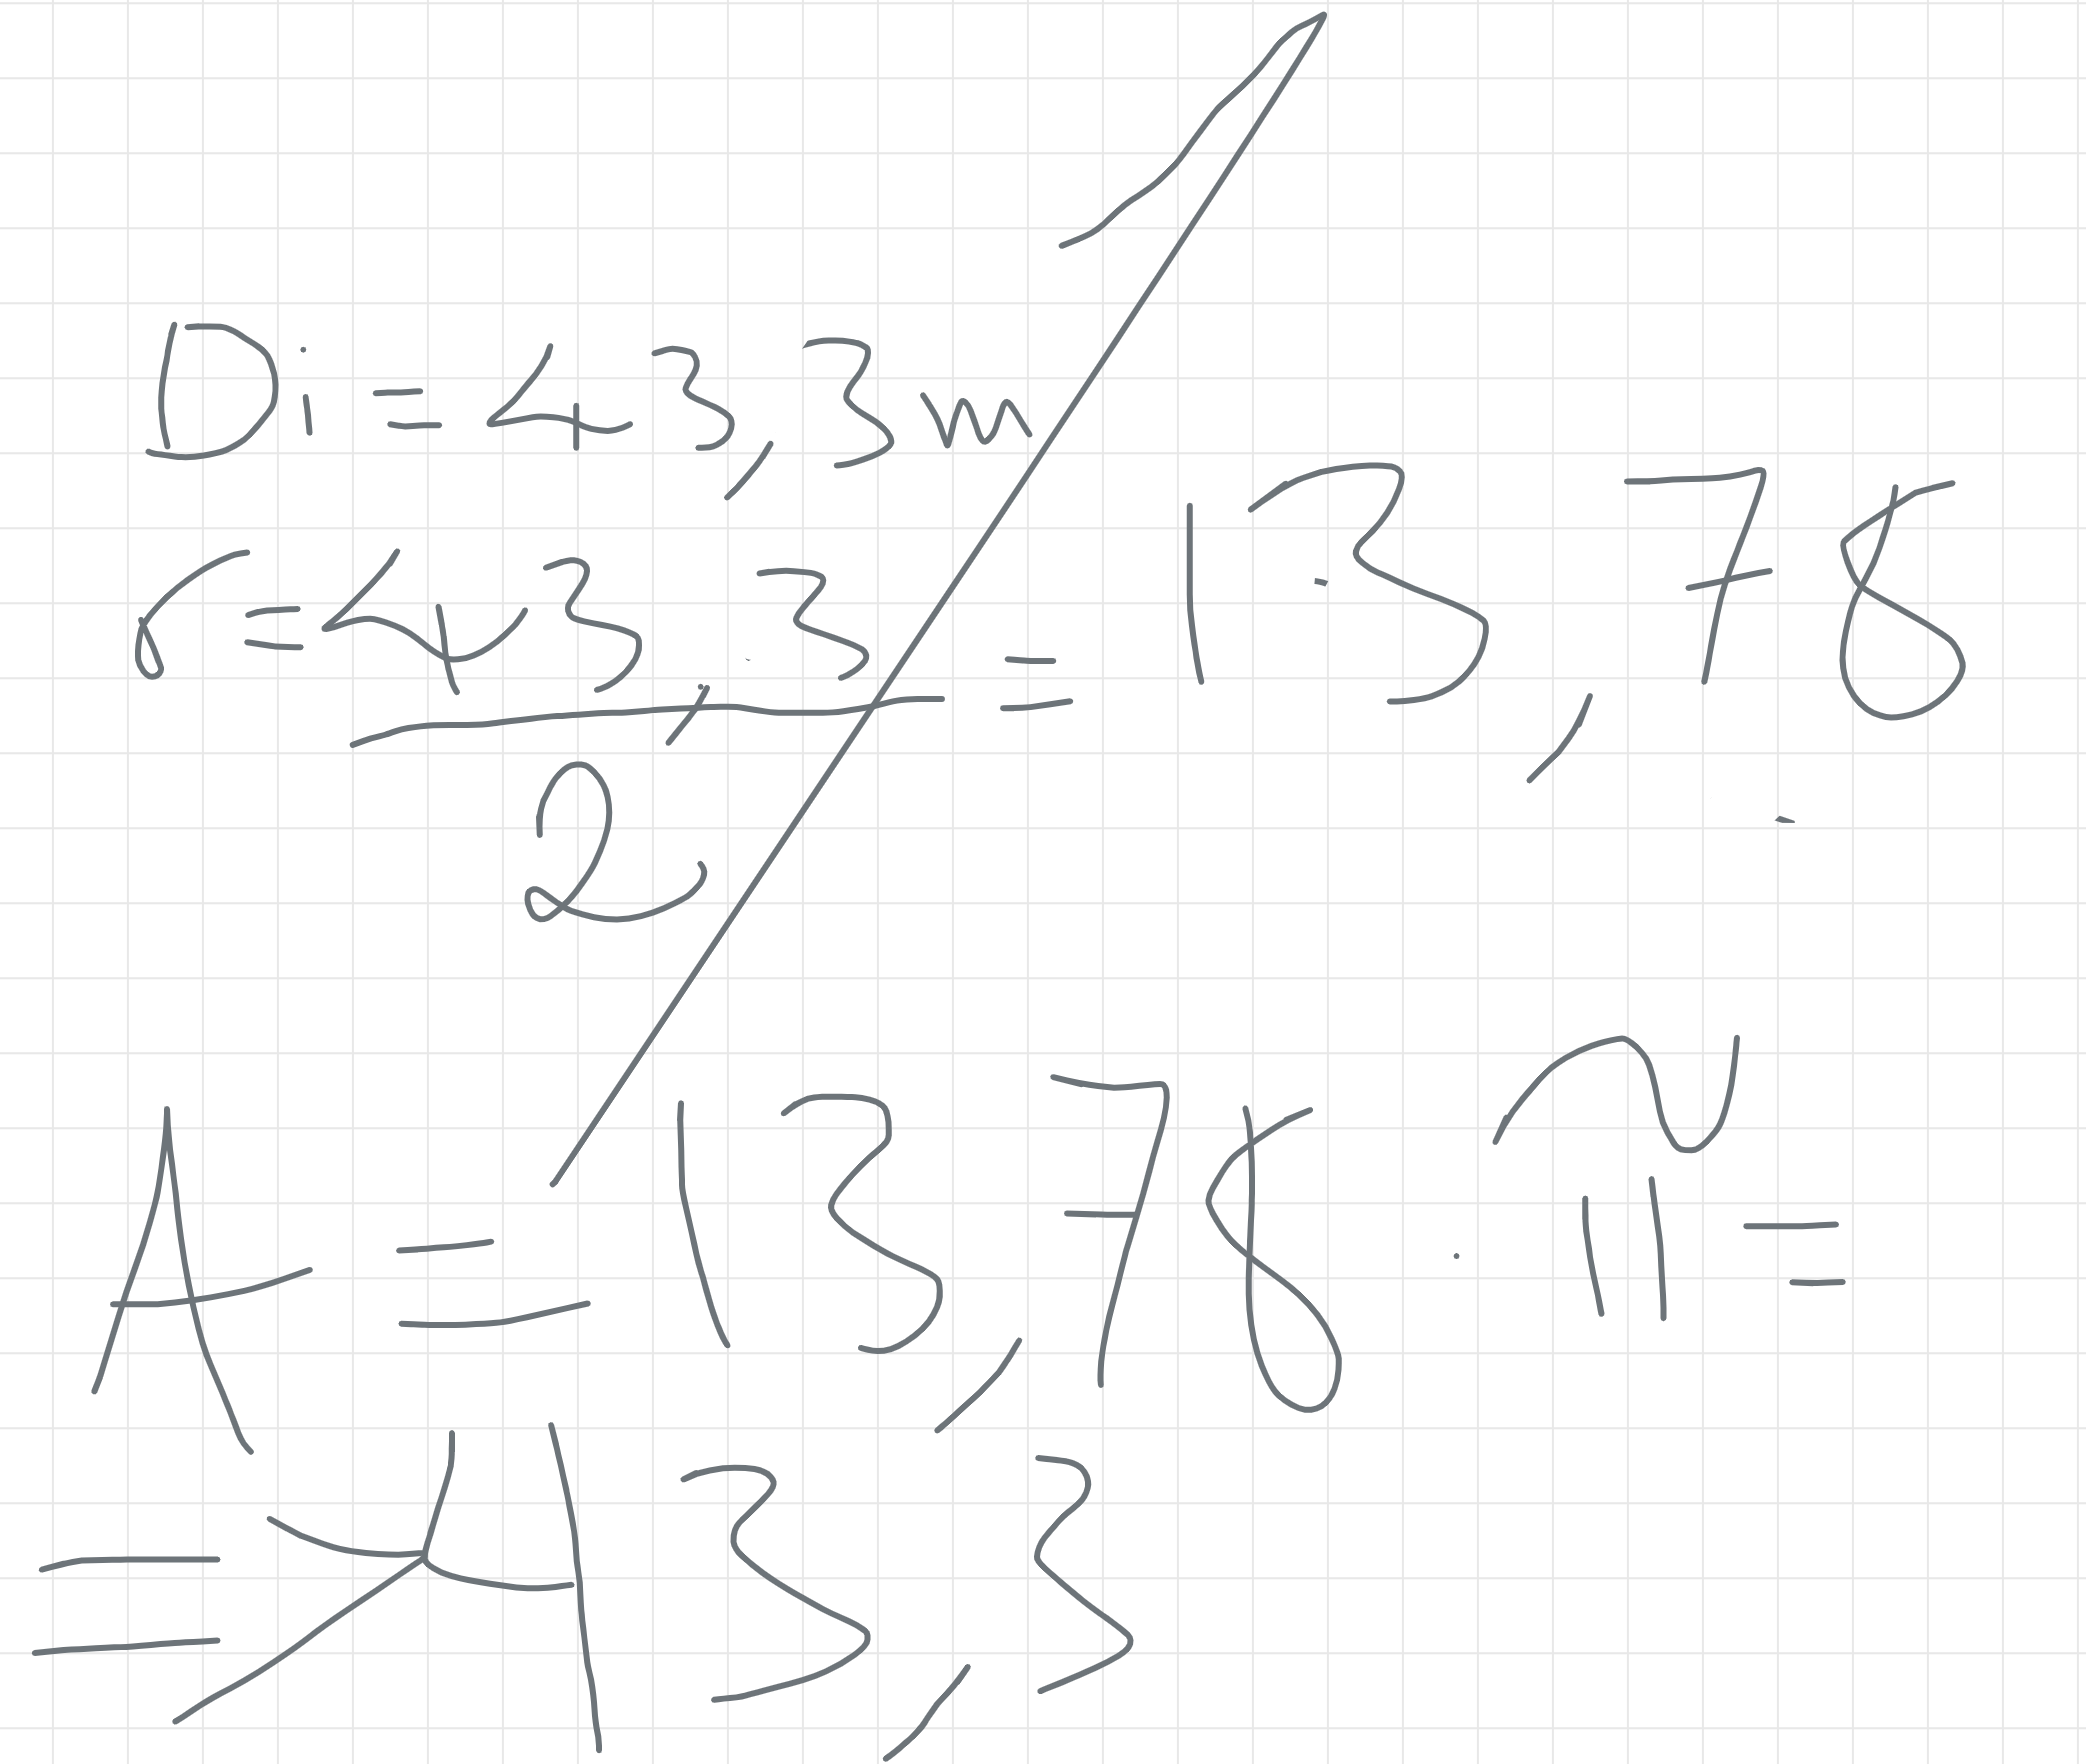 Di = 43,3 m
r = 43,3 / 2 = 13,78
A = 13,78 · ~ 11 =
= 43,3